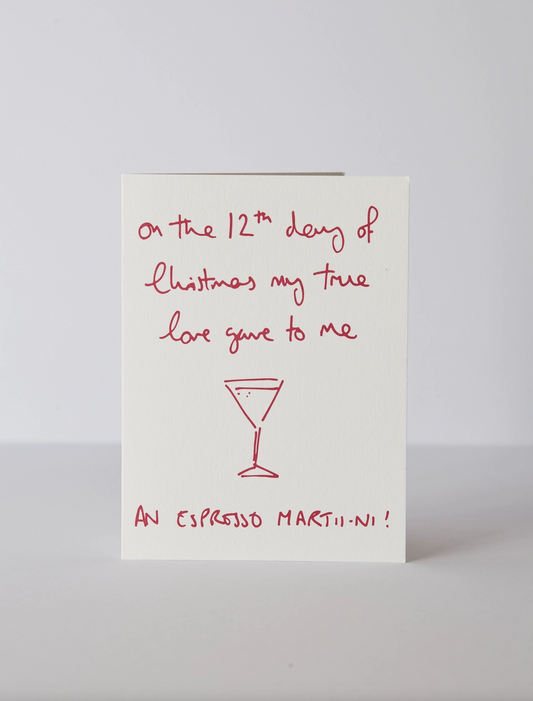 on the 12th day of
Christmas my true
love gave to me
AN ESPRESSO MARTII-NI!